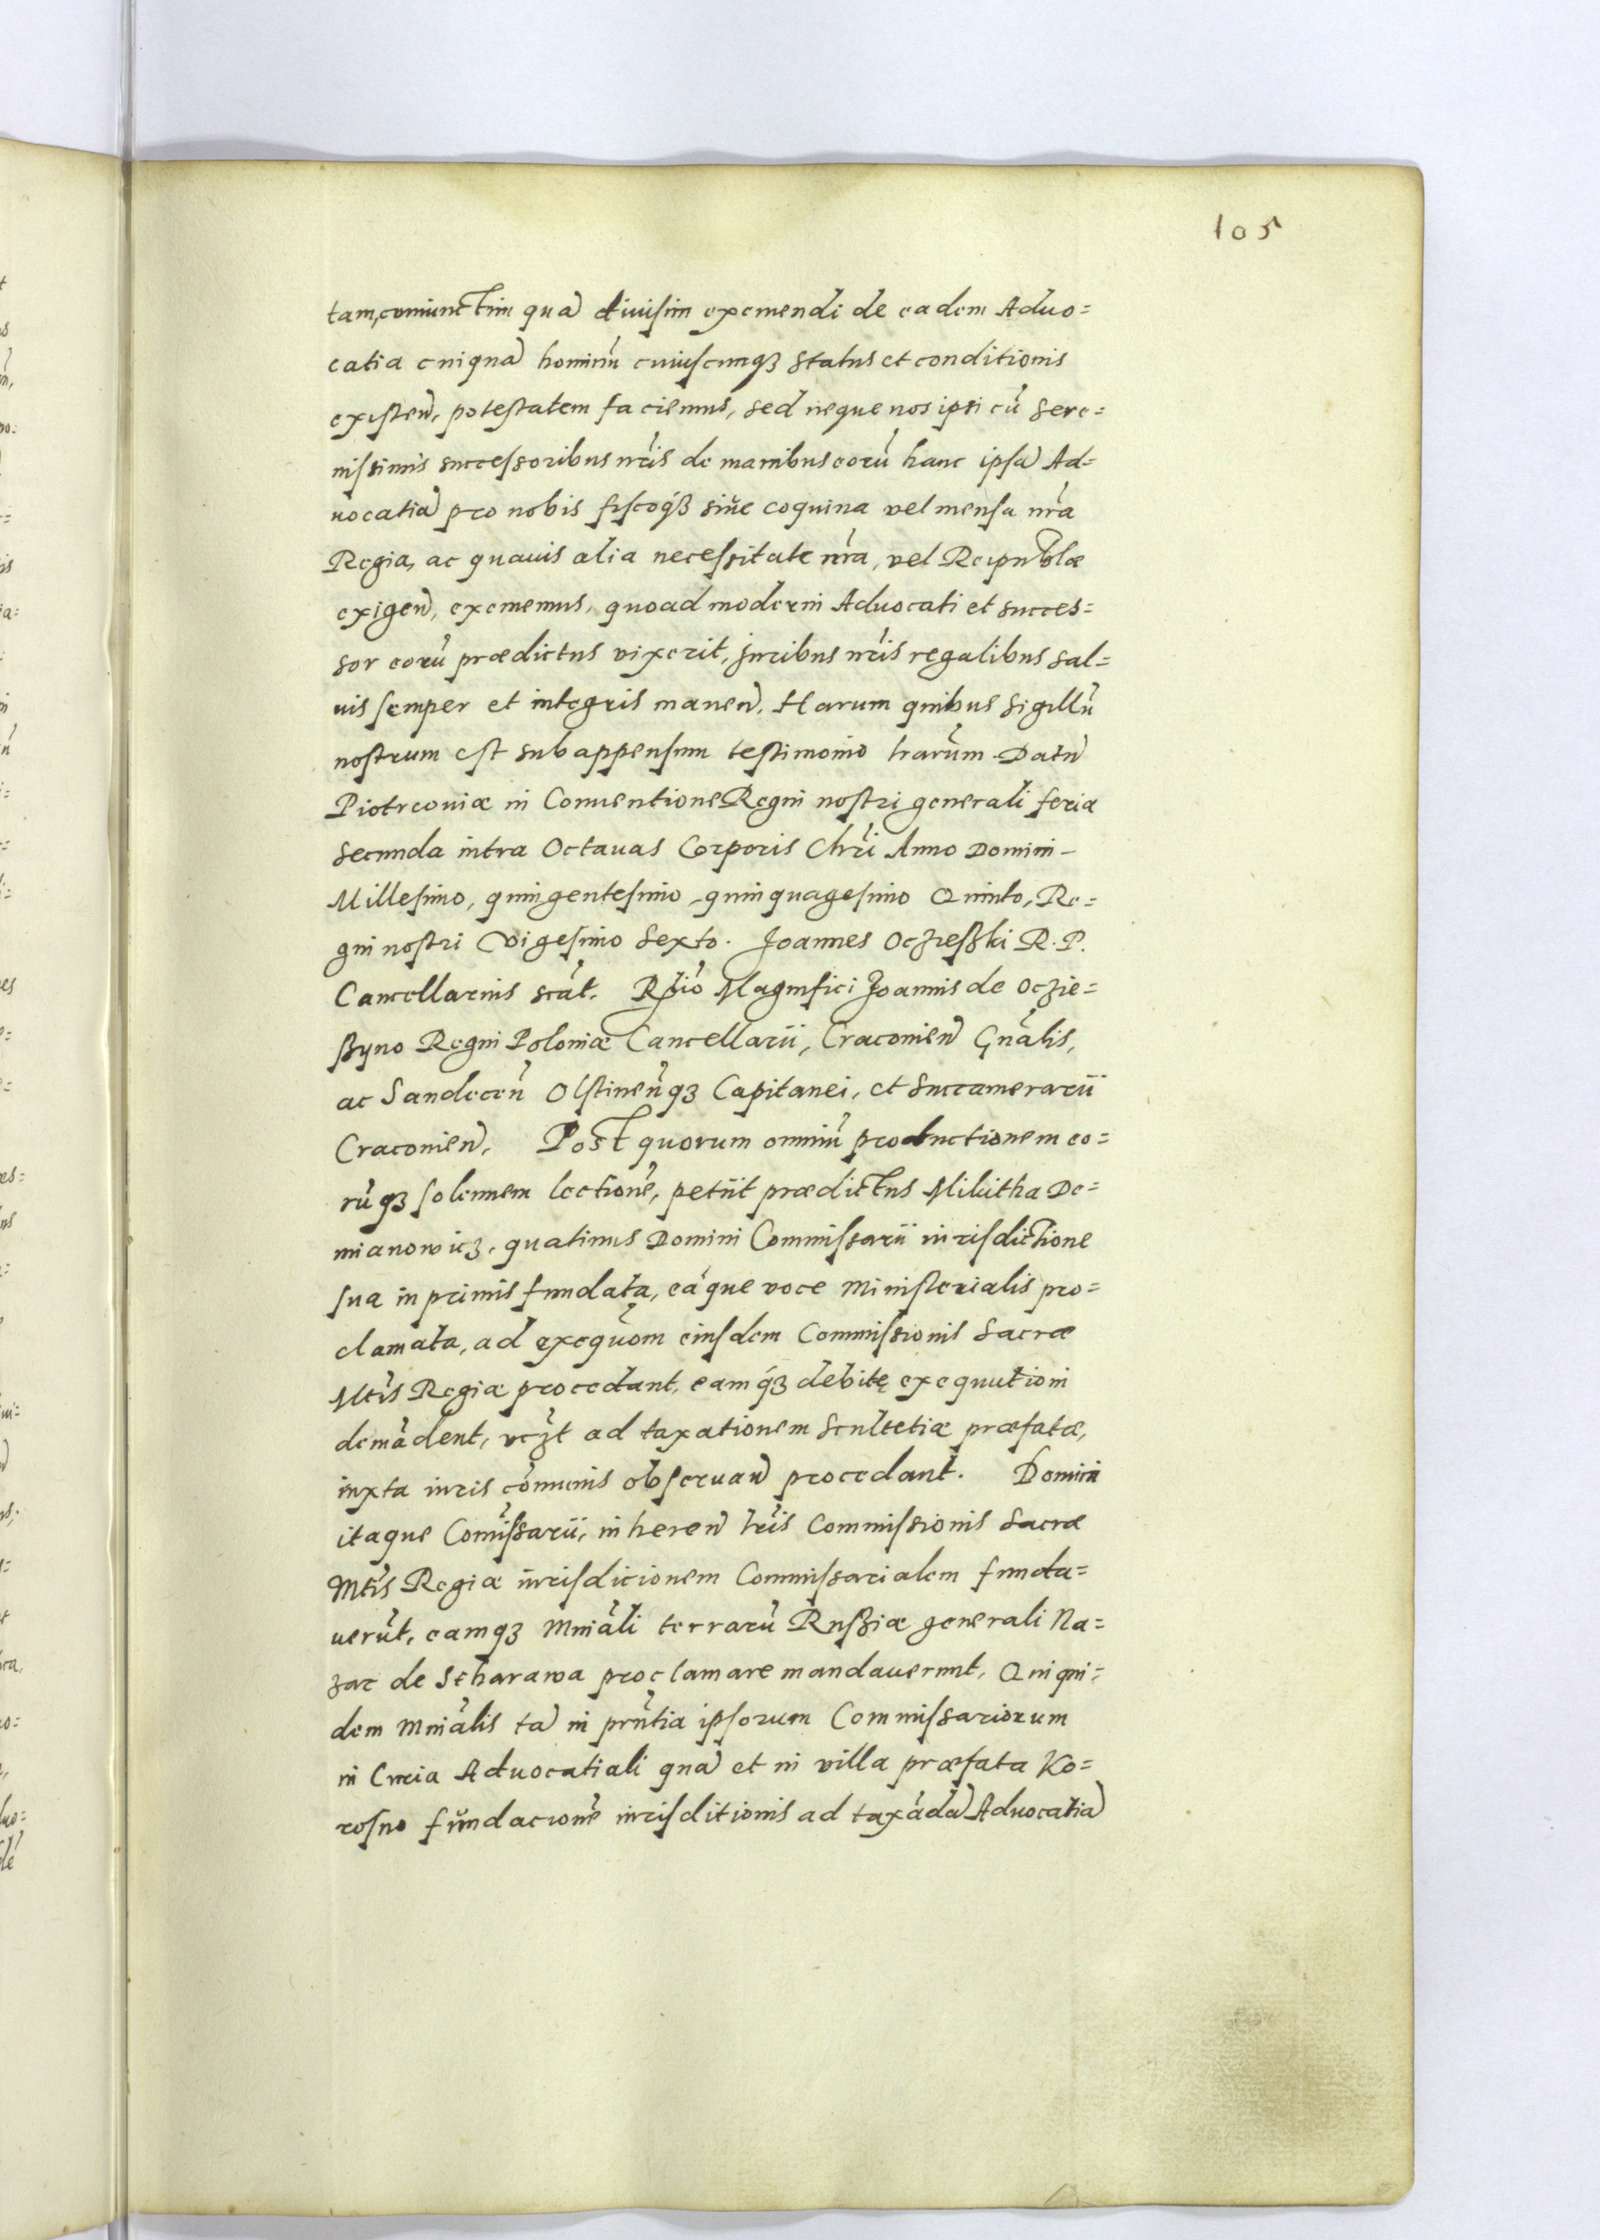 105
tam, coniunctim quã diuisim exemendi de eadem Aduo=
catia cuiquã hominũ cuiuscunqʒ status et conditionis
existeñ, potestatem faciemus, sed neque nos ipsi cũ Sere=
nissimis successoribus nr̃is de manibus eorũ hanc ipsã Ad=
uocatiã pro nobis fiscoqʒ siue coquina vel mensa nr̃a
Regia, ac quauis alia necessitate nr̃a, vel Reipublæ
exigeñ, exememus, quoad moderni Aduocati et succes=
sor eorũ prædictus vixerit, juribus nr̃is regalibus sal=
uis semper et integris maneñ. Harum quibus Sigillũ
nostrum est subappensum testimonio lrarũm. Datũ
Piotrcouiæ in Conuentione Regni nostri generali feria
Secunda intra Octauas Corporis Chr̃i Anno Domini
Millesimo, quingentesimo, quinquagesimo Quinto, Re=
gni nostri Vigesimo Sexto. Joannes Oczießki R. P.
Cancellarius scãt. Rl̃io Magnifici Joannis de Oczie=
ßyno Regni Poloniæ Cancellarii, Cracouieñ Gñalis,
ac Sandeceñ Olstineñqʒ Capitanei, et Succamerarii
Cracouieñ. Post quorum omniũ productionem eo=
rũqʒ solennem lectionẽ, petiit prædictus Mikitha De=
mianowicz, quatinus Domini Commissarii iurisdictione
sua in primis fundata, eáque voce Ministerialis pro=
clamata, ad exequũom eiusdem Commissionis Sacræ
Mtĩs Regiæ procedant, eamqʒ debitę exequutioni
demãdent, vcʒt ad taxationem Scultetiæ præfatæ,
iuxta iuris cõmunis obseruañ procedant. Domini
itaque Comĩssarii, inhereñ lr̃is Commissionis Sacræ
Mtĩs Regiæ iurisdicionem Commissarialem funda=
uerũt, eamqʒ Mniãli terrarũ Rußiæ generali Na=
zar de Scharawa proclamare mandauerunt, Quiqui=
dem Mniãlis tã in prñtia ipsorum Commissariorum
in Curia Aduocatiali quã et in villa præfata Ko=
rosno fundacionẽ iurisditionis ad taxãdã Aduocatiã